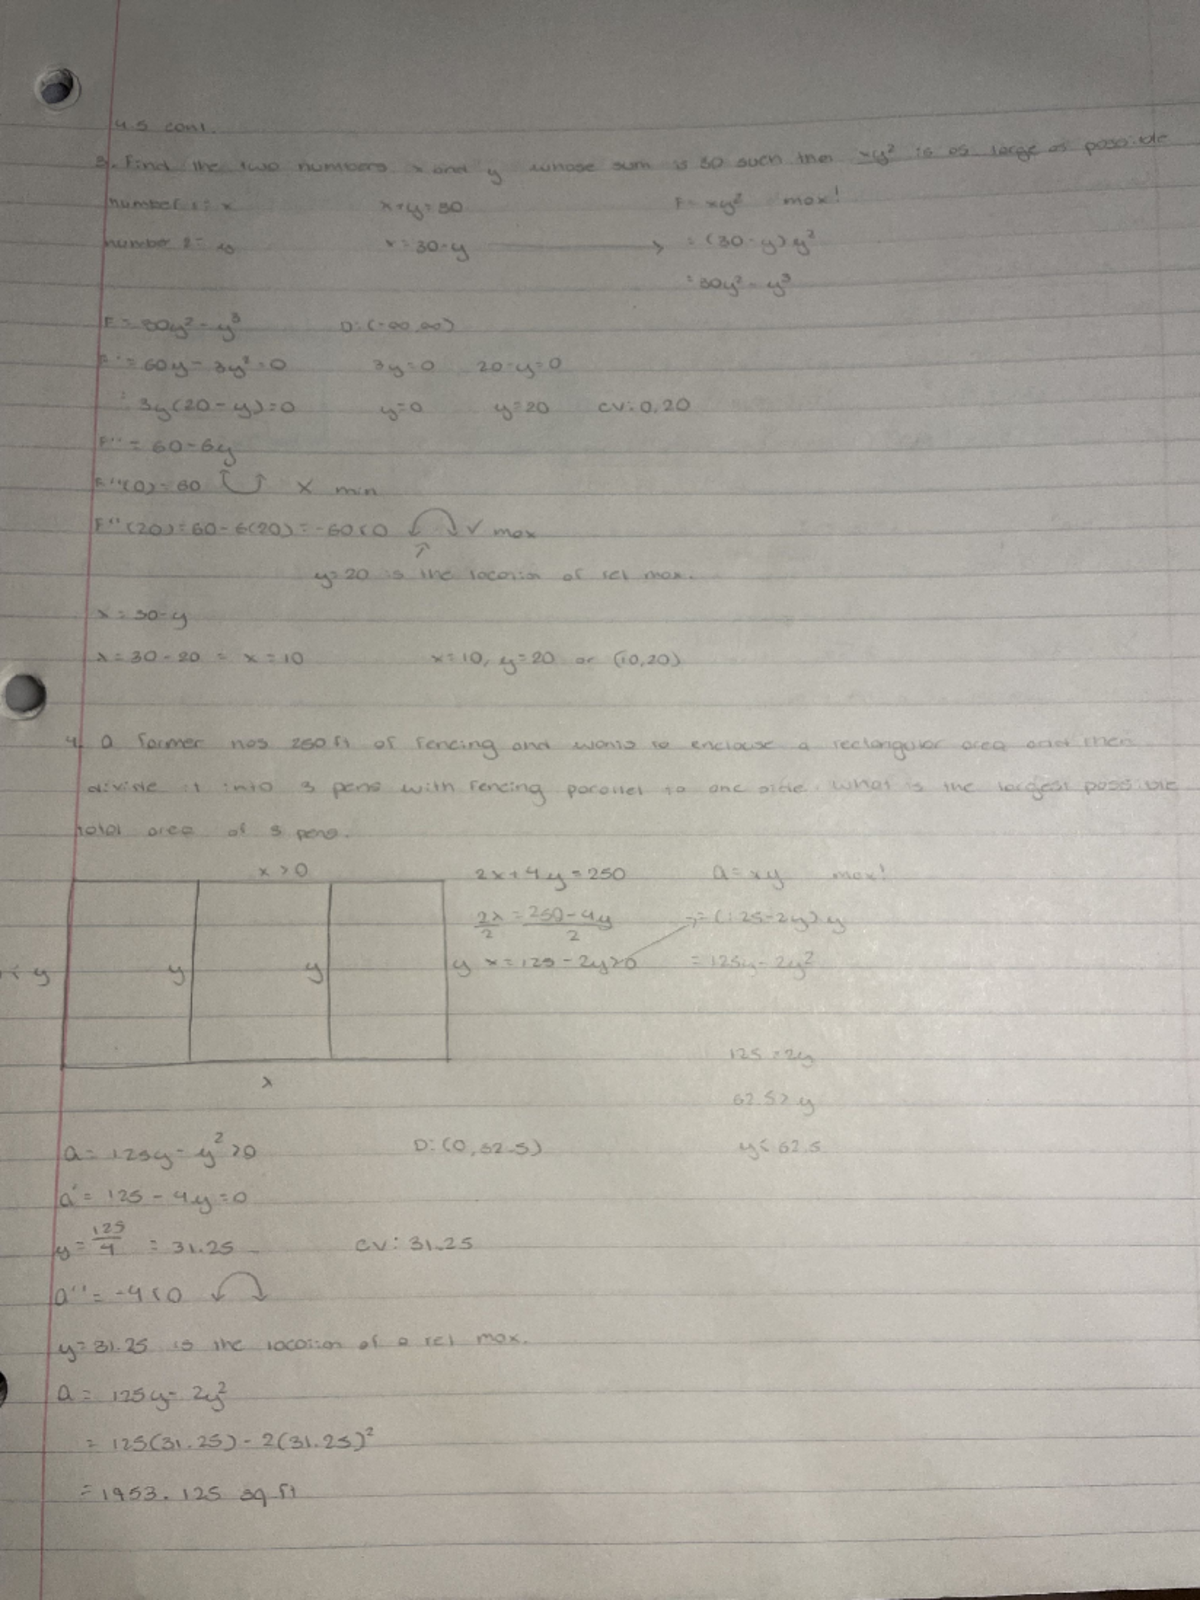 4.5 cont.
3. Find the two numbers x and y whose sum is 30 such that xy² is as large as possible
number 1: x x+y=30 F= xy² max!
number 2= x=30-y → =(30-y)y²
=30y²-y³
F=30y²-y³ D:(-∞,∞)
F'=60y-3y²=0 3y=0 20-y=0
:3y(20-y)=0 y=0 y=20 CV:0,20
F''=60-6y
F''(0)=60 X min
F''(20)=60-6(20)=-60<0 ✓ max
↑
y=20 is the location of rel max.
x=30-y
x=30-20 = x=10 x=10, y=20 or (10,20)
4. a farmer has 250ft of fencing and wants to enclouse a rectangular area and then
divide it into 3 pens with fencing parallel to one side. What is the largest possible
total area of 3 pens.
x>0 2x+4y=250 a=xy max!
2x/2=250-4y/2 →=(125-2y)y
< y y y y x=125-2y>0 =125y-2y²
125>2y
x 62.5>y
a=125y-y²>0 D:(0,62.5) y<62.5
a'=125-4y=0
y=125/4 =31.25 CV:31.25
a''=-4<0
y=31.25 is the location of a rel max.
a=125y-2y²
=125(31.25)-2(31.25)²
=1953.125 sq ft